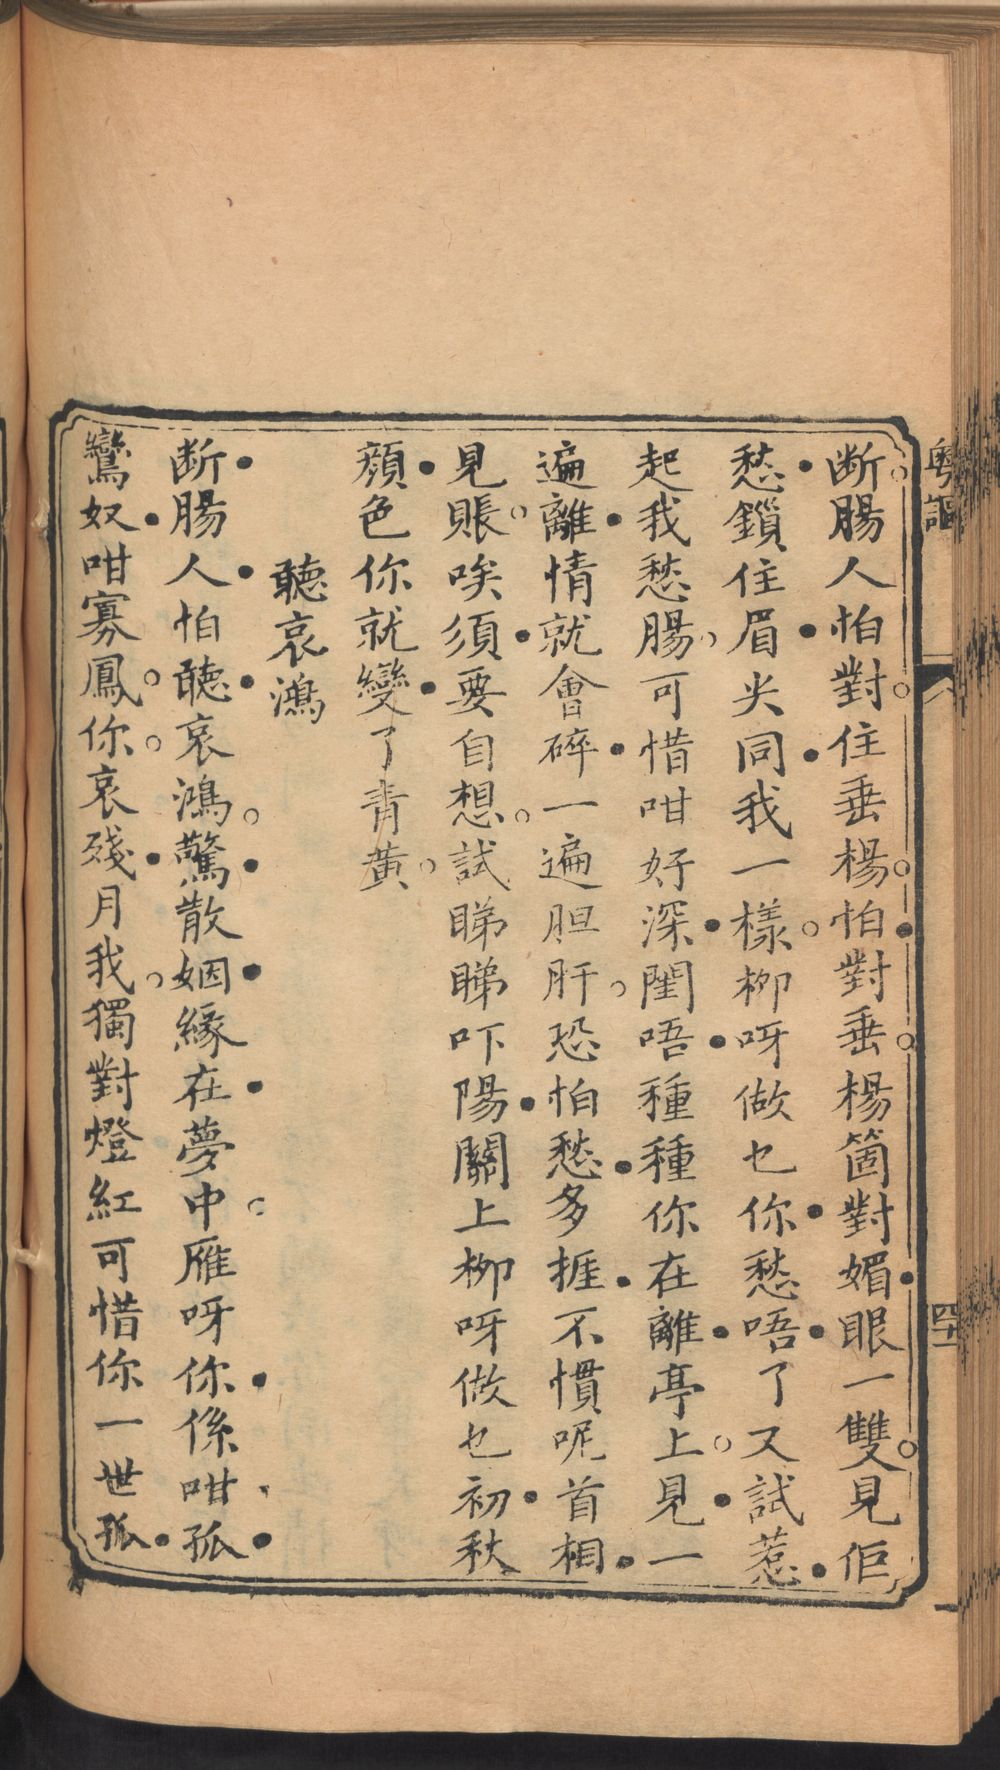 粵謳
四十一
断腸人怕對住垂楊怕對垂楊箇對媚眼一雙見佢
愁鎖住眉尖同我一樣柳呀做乜你愁唔了又試惹
起我愁腸可惜咁好深閨唔種種你在離亭上見一
遍離情就會碎一遍胆肝恐怕愁多捱不慣呢首相
見賬唉須要自想試睇睇吓陽關上柳呀做乜初秋
顏色你就變了青黃
聽哀鴻
断腸人怕聽哀鴻驚散姻緣在夢中雁呀你係咁孤
鸞奴咁寡鳳你哀殘月我獨對燈紅可惜你一世孤